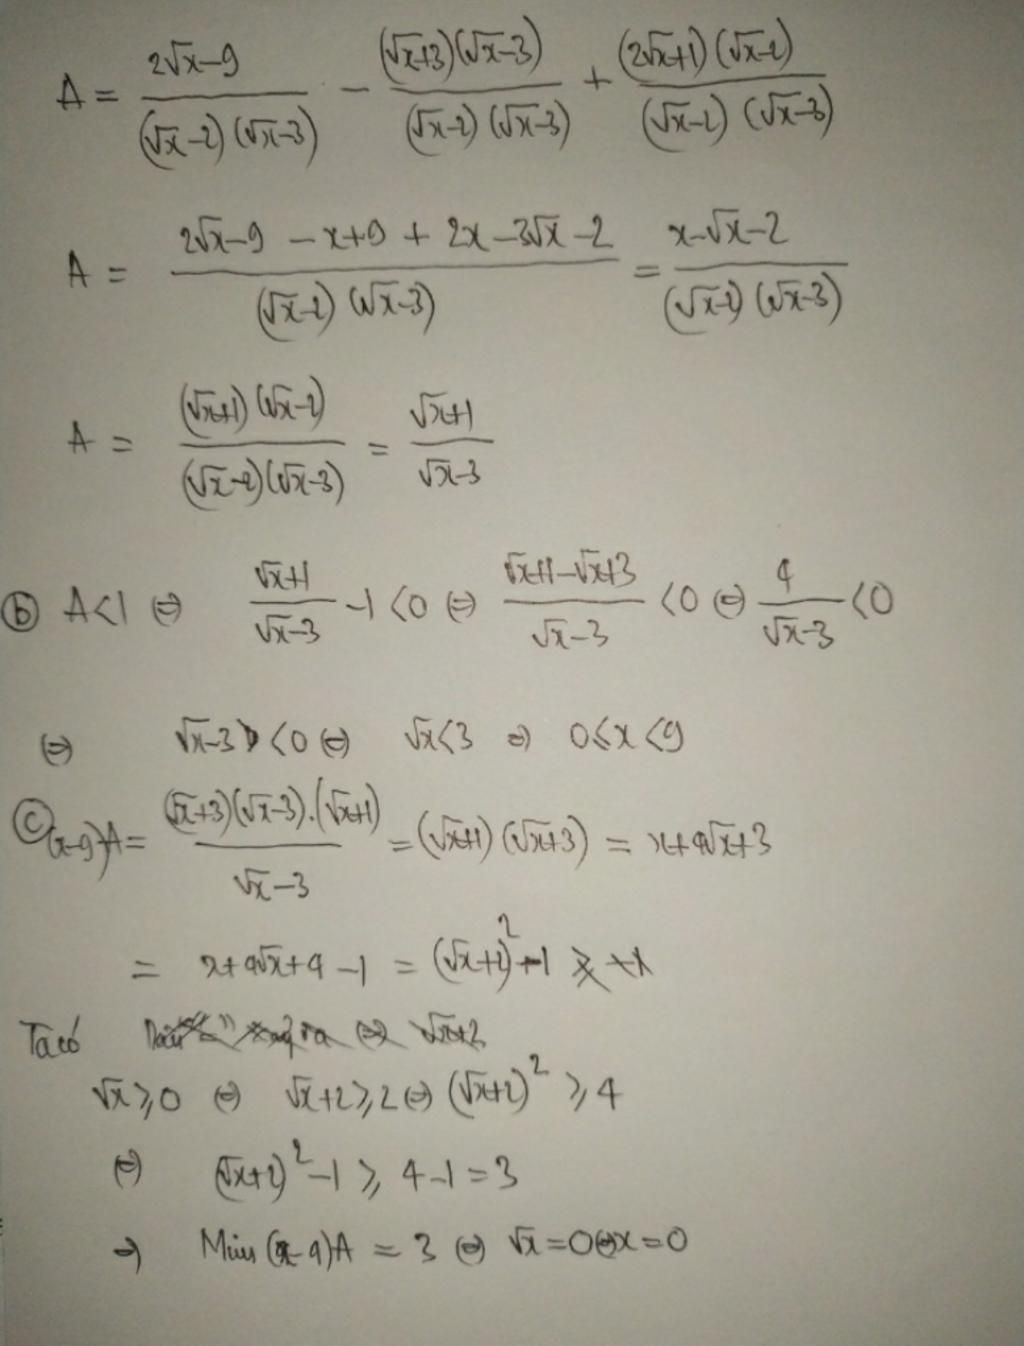 A = (2√x-9)/((√x-2)(√x-3)) - ((√x+3)(√x-3))/((√x-2)(√x-3)) + ((2√x+1)(√x-2))/((√x-2)(√x-3))
A = (2√x-9-x+9+2x-3√x-2)/((√x-2)(√x-3)) = (x-√x-2)/((√x-2)(√x-3))
A = ((√x+1)(√x-2))/((√x-2)(√x-3)) = (√x+1)/(√x-3)
b) A<1 ⇔ (√x+1)/(√x-3) -1 <0 ⇔ (√x+1-√x+3)/(√x-3) <0 ⇔ 4/(√x-3) <0
⇔ √x-3 <0 ⇔ √x<3 ⇒ 0≤x<9
c) (x-9)A = ((√x+3)(√x-3).(√x+1))/(√x-3) = (√x+1)(√x+3) = x+4√x+3
= x+4√x+4-1 = (√x+2)²-1
Ta có
√x≥0 ⇔ √x+2≥2 ⇔ (√x+2)² ≥4
⇔ (√x+2)²-1 ≥ 4-1=3
⇒ Min (x-9)A = 3 ⇔ √x=0⇔x=0